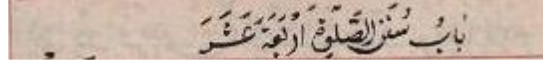 بَابُ سُنَنِ الصَّلٰوةِ اَرْبَعَةَ عَشَرَ